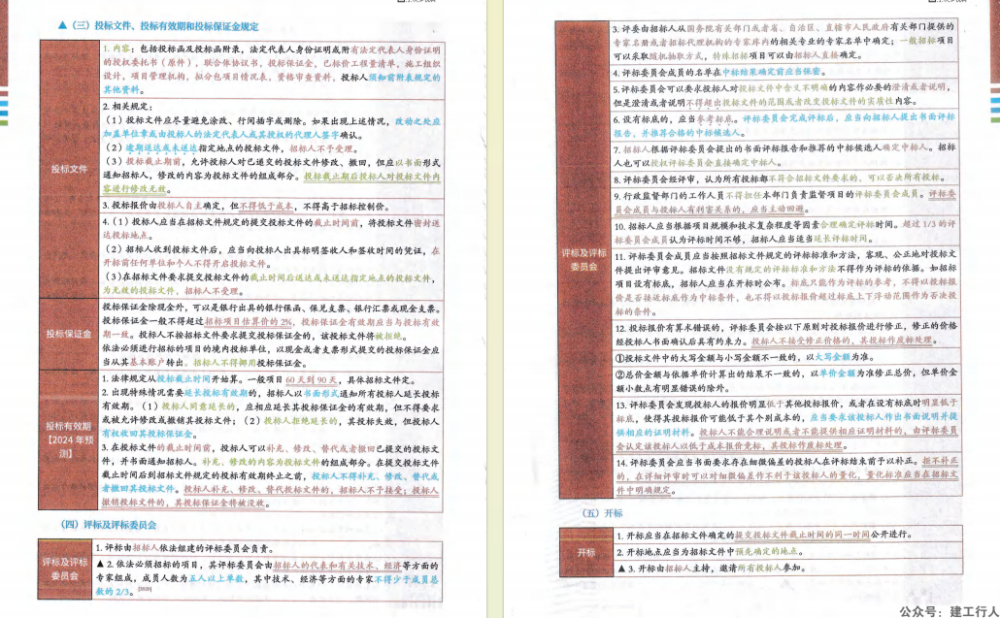 ▲（三）投标文件、投标有效期和投标保证金规定
投标文件
1. 内容：包括投标函及投标函附录，法定代表人身份证明或附有法定代表人身份证明
的授权委托书（原件），联合体协议书，投标保证金，已标价工程量清单，施工组织
设计，项目管理机构，拟分包项目情况表，资格审查资料，投标人须知前附表规定的
其他资料。
2. 相关规定：
（1）投标文件应尽量避免涂改、行间插字或删除。如果出现上述情况，改动之处应
加盖单位章或由投标人的法定代表人或其授权的代理人签字确认。
（2）逾期送达或未送达指定地点的投标文件，招标人不予受理。
（3）投标截止期前，允许投标人对已递交的投标文件修改、撤回，但应以书面形式
通知招标人，修改的内容为投标文件的组成部分。投标截止期后投标人对投标文件内
容进行修改无效。
3. 投标报价由投标人自主确定，但不得低于成本，不得高于招标控制价。
4.（1）投标人应当在招标文件规定的提交投标文件的截止时间前，将投标文件密封送
达投标地点。
（2）招标人收到投标文件后，应当向投标人出具标明签收人和签收时间的凭证，在
开标前任何单位和个人不得开启投标文件。
（3）在招标文件要求提交投标文件的截止时间后送达或未送达指定地点的投标文件，
为无效的投标文件，招标人不受理。
投标保证金
投标保证金除现金外，可以是银行出具的银行保函、保兑支票、银行汇票或现金支票。
投标保证金一般不得超过招标项目估算价的2%，投标保证金有效期应当与投标有效
期一致。投标人不按招标文件要求提交投标保证金的，该投标文件将被拒绝。
依法必须进行招标的项目的境内投标单位，以现金或者支票形式提交的投标保证金应
当从其基本账户转出。招标人不得挪用投标保证金。
投标有效期
【2024年预
测】
1. 法律规定从投标截止时间开始算。一般项目60天到90天，具体招标文件定。
2. 出现特殊情况需要延长投标有效期的，招标人以书面形式通知所有投标人延长投标
有效期。（1）投标人同意延长的，应相应延长其投标保证金的有效期，但不得要求
或被允许修改或撤销其投标文件；（2）投标人拒绝延长的，其投标失效，但投标人
有权收回其投标保证金。
3. 在投标文件的截止时间前，投标人可以补充、修改、替代或者撤回已提交的投标文
件，并书面通知招标人。补充、修改的内容为投标文件的组成部分。在提交投标文件
截止时间后到招标文件规定的投标有效期终止之前，投标人不得补充、修改、替代或
者撤回其投标文件。投标人补充、修改、替代投标文件的，招标人不予接受；投标人
撤销投标文件的，其投标保证金将被没收。
（四）评标及评标委员会
评标及评标
委员会
1. 评标由招标人依法组建的评标委员会负责。
▲ 2. 依法必须招标的项目，其评标委员会由招标人的代表和有关技术、经济等方面的
专家组成，成员人数为五人以上单数，其中技术、经济等方面的专家不得少于成员总
数的2/3。
评标及评标
委员会
3. 评委由招标人从国务院有关部门或者省、自治区、直辖市人民政府有关部门提供的
专家名册或者招标代理机构的专家库内的相关专业的专家名单中确定；一般招标项目
可以采取随机抽取方式，特殊招标项目可以由招标人直接确定。
4. 评标委员会成员的名单在中标结果确定前应当保密。
5. 评标委员会可以要求投标人对投标文件中含义不明确的内容作必要的澄清或者说明，
但是澄清或者说明不得超出投标文件的范围或者改变投标文件的实质性内容。
6. 设有标底的，应当参考标底。评标委员会完成评标后，应当向招标人提出书面评标
报告，并推荐合格的中标候选人。
7. 招标人根据评标委员会提出的书面评标报告和推荐的中标候选人确定中标人。招标
人也可以授权评标委员会直接确定中标人。
8. 评标委员会经评审，认为所有投标都不符合招标文件要求的，可以否决所有投标。
9. 行政监督部门的工作人员不得担任本部门负责监督项目的评标委员会成员。评标委
员会成员与投标人有利害关系的，应当主动回避。
10. 招标人应当根据项目规模和技术复杂程度等因素合理确定评标时间。超过1/3的评
标委员会成员认为评标时间不够，招标人应当适当延长评标时间。
11. 评标委员会成员应当按照招标文件规定的评标标准和方法，客观、公正地对投标文
件提出评审意见。招标文件没有规定的评标标准和方法不得作为评标的依据。如招标
项目设有标底，招标人应当在开标时公布。标底只能作为评标的参考，不得以投标报
价是否接近标底作为中标条件，也不得以投标报价超过标底上下浮动范围作为否决投
标的条件。
12. 投标报价有算术错误的，评标委员会按以下原则对投标报价进行修正，修正的价格
经投标人书面确认后具有约束力。投标人不接受修正价格的，其投标作废标处理。
①投标文件中的大写金额与小写金额不一致的，以大写金额为准。
②总价金额与依据单价计算出的结果不一致的，以单价金额为准修正总价，但单价金
额小数点有明显错误的除外。
13. 评标委员会发现投标人的报价明显低于其他投标报价，或者在设有标底时明显低于
标底，使得其投标报价可能低于其个别成本的，应当要求该投标人作出书面说明并提
供相应的证明材料。投标人不能合理说明或者不能提供相应证明材料的，由评标委员
会认定该投标人以低于成本报价竞标，其投标作废标处理。
14. 评标委员会应当书面要求存在细微偏差的投标人在评标结束前予以补正。拒不补正
的，在详细评审时可以对细微偏差作不利于该投标人的量化，量化标准应当在招标文
件中明确规定。
（五）开标
开标
1. 开标应当在招标文件确定的提交投标文件截止时间的同一时间公开进行。
2. 开标地点应当为招标文件中预先确定的地点。
▲ 3. 开标由招标人主持，邀请所有投标人参加。
公众号：建工行人